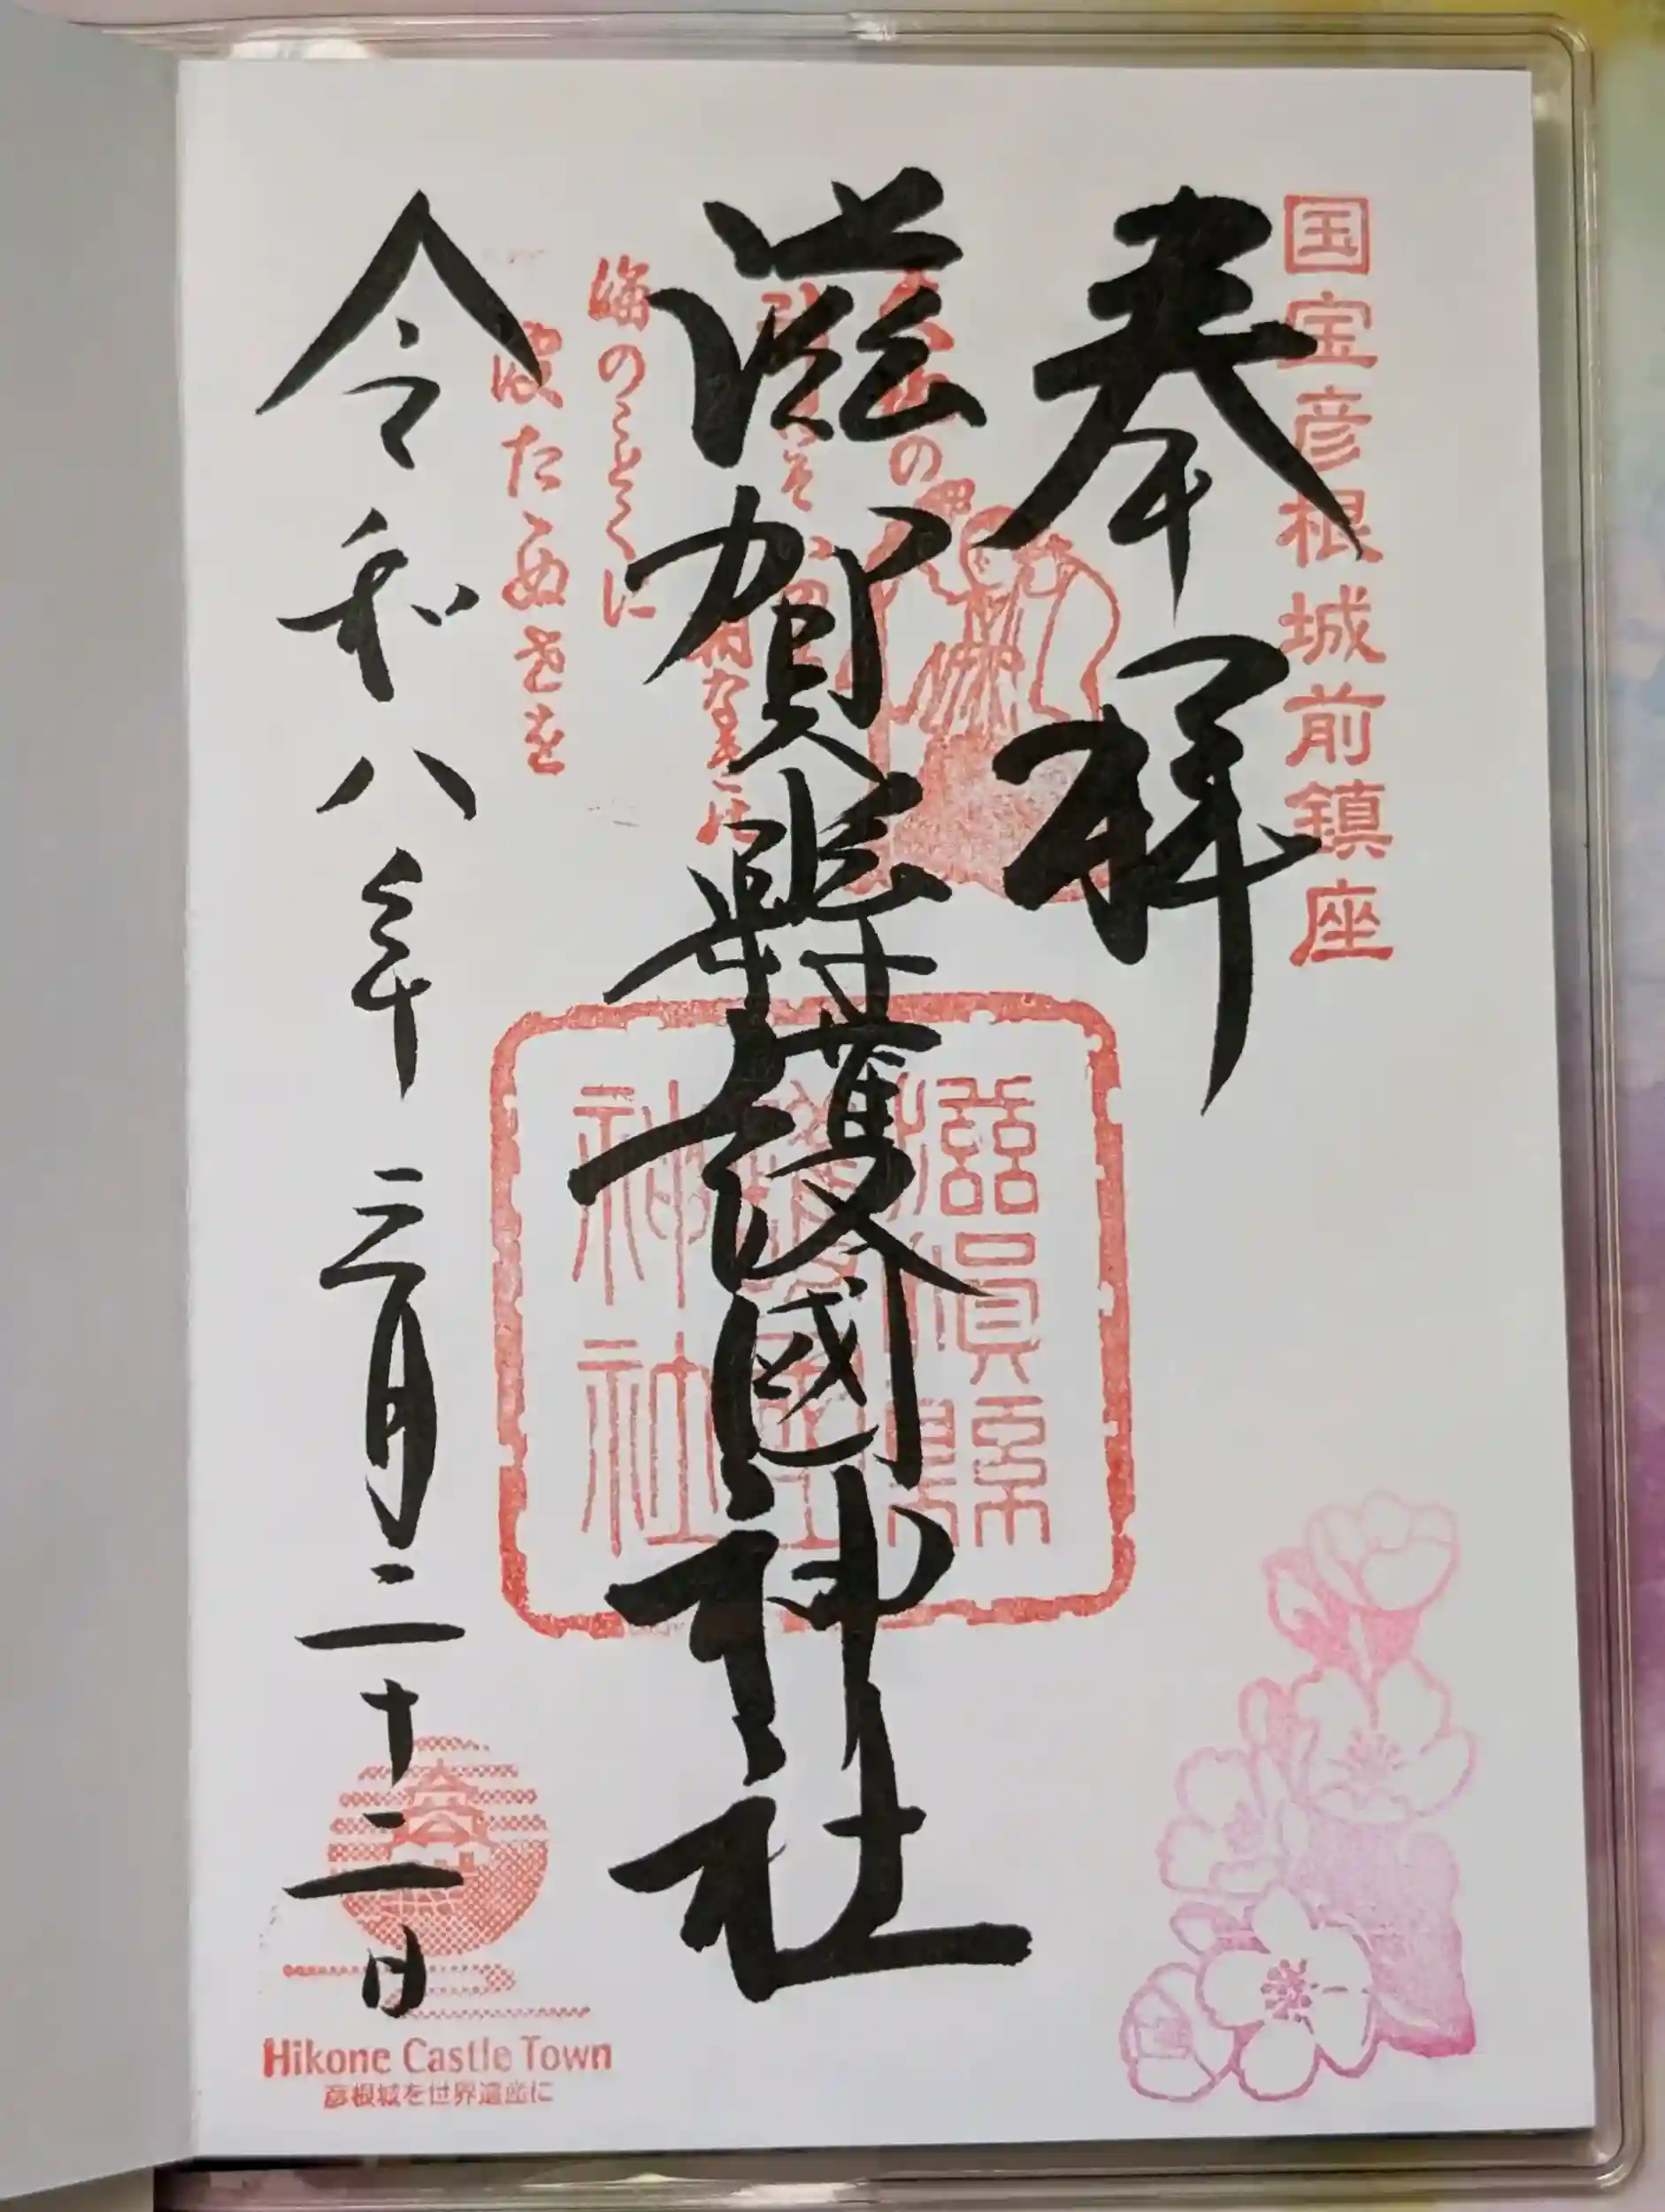 国宝彦根城前鎮座
奉拝
滋賀縣護國神社
海のことくに
波たゝぬ世を
令和八年三月二十二日
滋賀縣
護國
神社
Hikone Castle Town
彦根城を世界遺産に